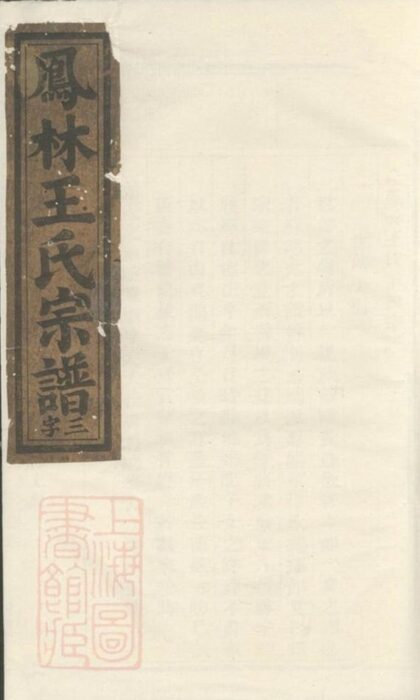 鳳林王氏宗譜
三字
上海圖
書館藏